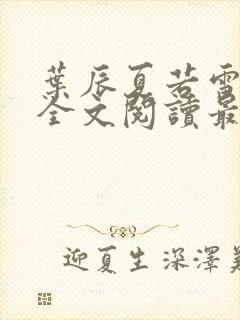 葉辰夏若雪
全文閱讀最
迎夏生深澤